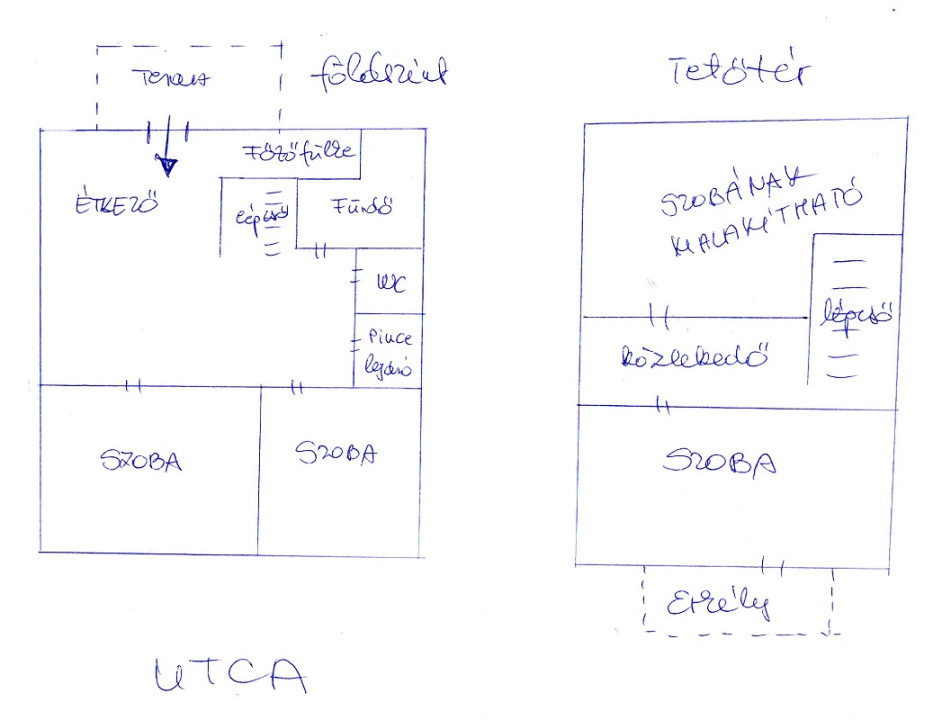 földszint
Terasz
Főzőfülke
ÉTKEZŐ
lépcső
Fürdő
WC
Pince
lejáró
SZOBA
SZOBA
UTCA
Tetőtér
SZOBÁNAK
KIALAKÍTHATÓ
lépcső
közlekedő
SZOBA
Erkély